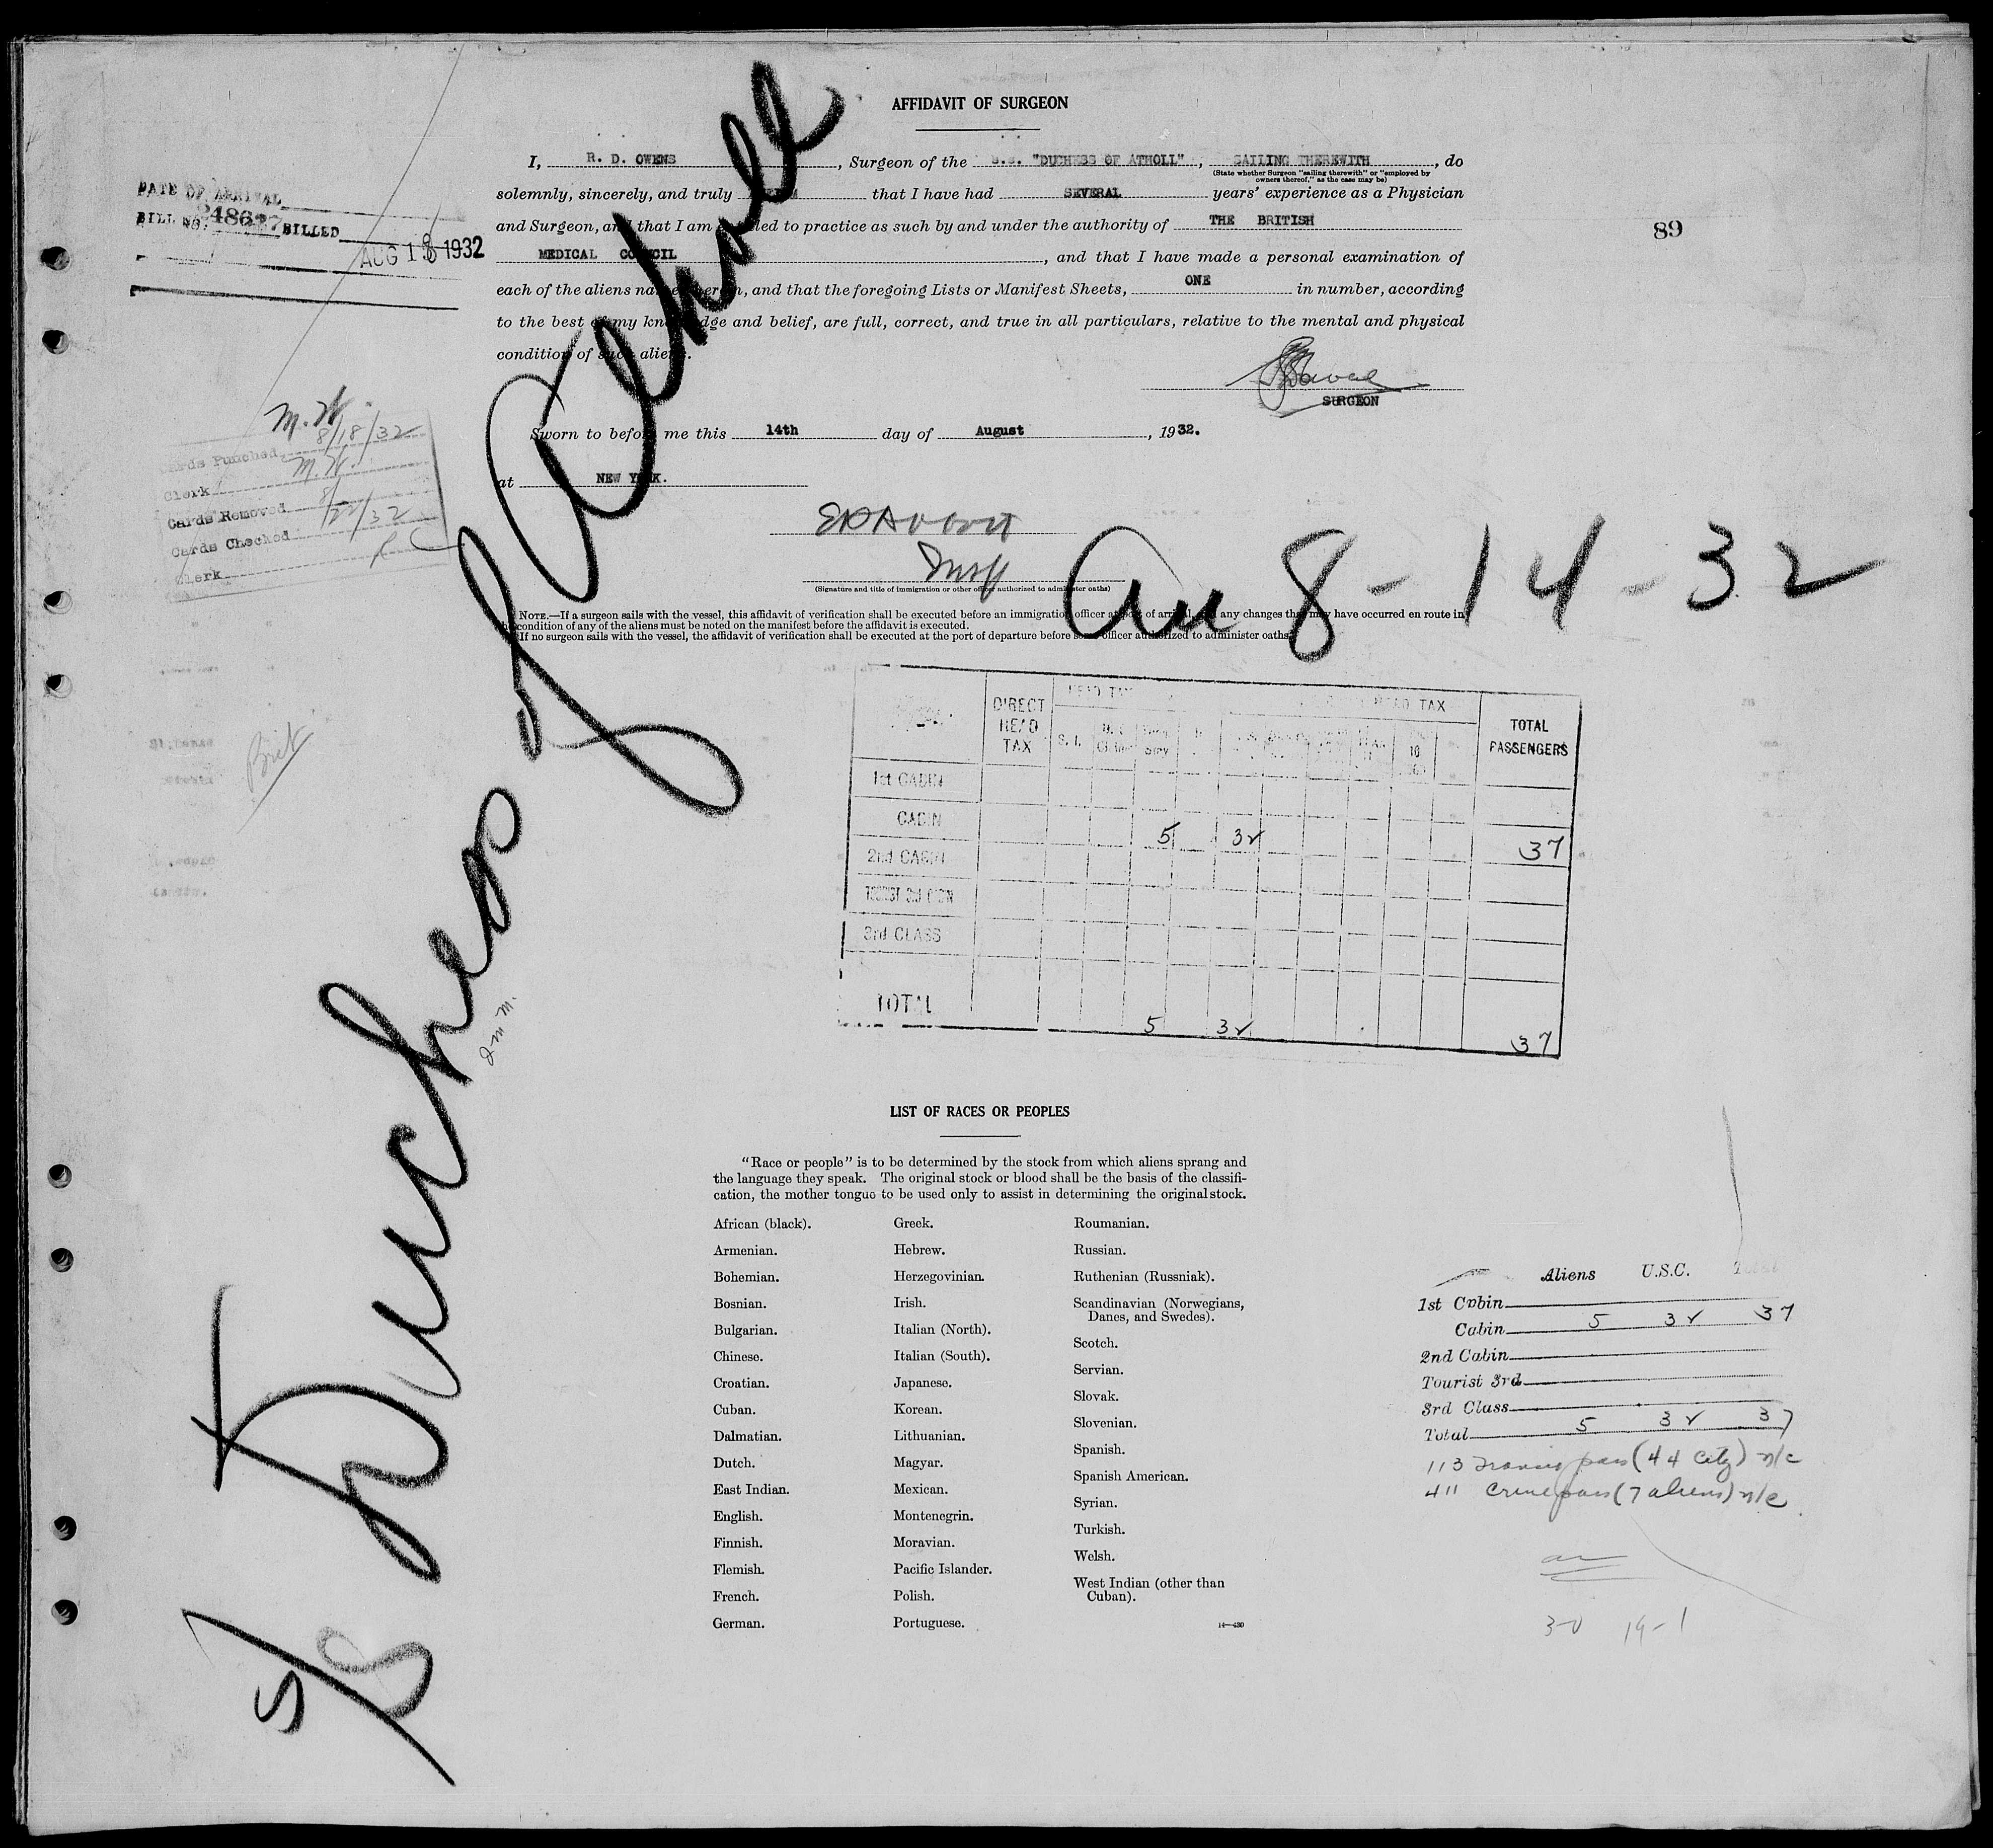 AFFIDAVIT OF SURGEON
I, R. D. OWENS, Surgeon of the S.S. "DUCHESS OF ATHOLL", SAILING THEREWITH, do
(State whether Surgeon "sailing therewith" or "employed by
owners thereof," as the case may be)
solemnly, sincerely, and truly that I have had SEVERAL years' experience as a Physician
and Surgeon, and that I am led to practice as such by and under the authority of THE BRITISH
MEDICAL COUNCIL, and that I have made a personal examination of
each of the aliens named herein, and that the foregoing Lists or Manifest Sheets, ONE in number, according
to the best of my knowledge and belief, are full, correct, and true in all particulars, relative to the mental and physical
condition of such aliens.
SURGEON
Sworn to before me this 14th day of August, 1932.
at NEW YORK.
Insp
(Signature and title of immigration or other officer authorized to administer oaths)
NOTE.—If a surgeon sails with the vessel, this affidavit of verification shall be executed before an immigration officer at port of arrival, and any changes that may have occurred en route in
condition of any of the aliens must be noted on the manifest before the affidavit is executed.
If no surgeon sails with the vessel, the affidavit of verification shall be executed at the port of departure before some officer authorized to administer oaths.
DATE OF ARRIVAL
BILL NO. 48627 BILLED
AUG 1 1932
89
M.W.
8/18/32
Cards Punched
M.W.
Clerk
Cards Removed 8/22/32
Cards Checked
Clerk
Brit
S/S Duchess of Atholl
Arr 8-14-32
DIRECT HEAD TAX
HEAD TAX
TOTAL PASSENGERS
S. I.
1st CABIN
CABIN 5 32 37
2nd CABIN
TOURIST 3rd CABIN
3rd CLASS
TOTAL 5 32 37
LIST OF RACES OR PEOPLES
"Race or people" is to be determined by the stock from which aliens sprang and
the language they speak. The original stock or blood shall be the basis of the classifi-
cation, the mother tongue to be used only to assist in determining the original stock.
African (black).
Armenian.
Bohemian.
Bosnian.
Bulgarian.
Chinese.
Croatian.
Cuban.
Dalmatian.
Dutch.
East Indian.
English.
Finnish.
Flemish.
French.
German.
Greek.
Hebrew.
Herzegovinian.
Irish.
Italian (North).
Italian (South).
Japanese.
Korean.
Lithuanian.
Magyar.
Mexican.
Montenegrin.
Moravian.
Pacific Islander.
Polish.
Portuguese.
Roumanian.
Russian.
Ruthenian (Russniak).
Scandinavian (Norwegians,
Danes, and Swedes).
Scotch.
Servian.
Slovak.
Slovenian.
Spanish.
Spanish American.
Syrian.
Turkish.
Welsh.
West Indian (other than
Cuban).
14—430
Aliens U.S.C. Total
1st Cabin
Cabin 5 32 37
2nd Cabin
Tourist 3rd
3rd Class
Total 5 32 37
113 Transit pass (44 City) n/c
411 Cruise pass (7 aliens) n/c
19-1